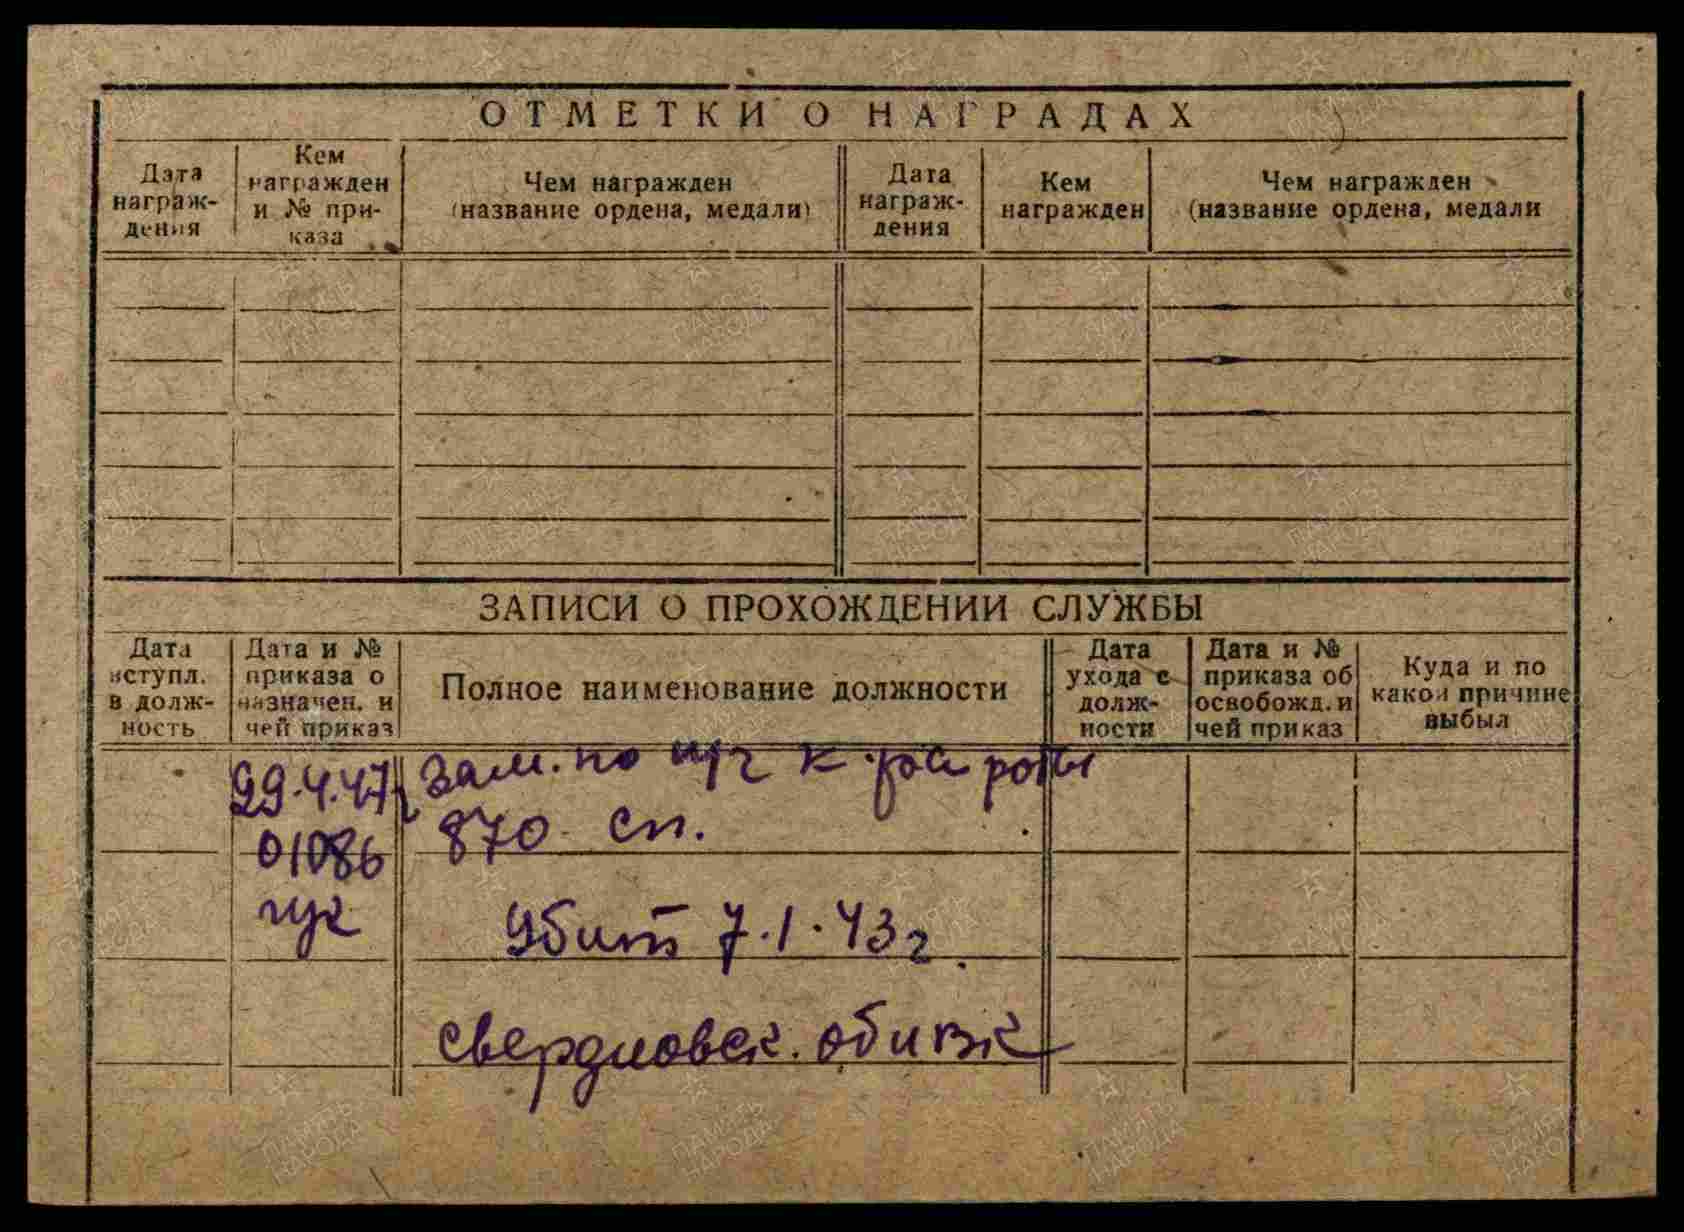 ОТМЕТКИ О НАГРАДАХ
Дата
награж-
дения
Кем
награжден
и № при-
каза
Чем награжден
(название ордена, медали)
Дата
награж-
дения
Кем
награжден
Чем награжден
(название ордена, медали
ЗАПИСИ О ПРОХОЖДЕНИИ СЛУЖБЫ
Дата
вступл.
в долж-
ность
Дата и №
приказа о
назначен. и
чей приказ
Полное наименование должности
Дата
ухода с
долж-
ности
Дата и №
приказа об
освобожд. и
чей приказ
Куда и по
какой причине
выбыл
29.4.47г
01086
гук
Зам. по п/ч к. роты
870 сп.
Убит 7.1.43г.
Свердловск. облвк
ПАМЯТЬ
НАРОДА